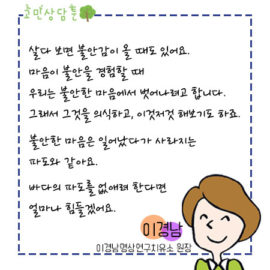 호민상담톡
살다 보면 불안감이 올 때도 있어요.
마음이 불안을 경험할 때
우리는 불안한 마음에서 벗어나려고 합니다.
그래서 그것을 의식하고, 이것저것 해보기도 하죠.
불안한 마음은 일어났다가 사라지는
파도와 같아요.
바다의 파도를 없애려 한다면
얼마나 힘들겠어요.
이경남
이경남명상연구치유소 원장